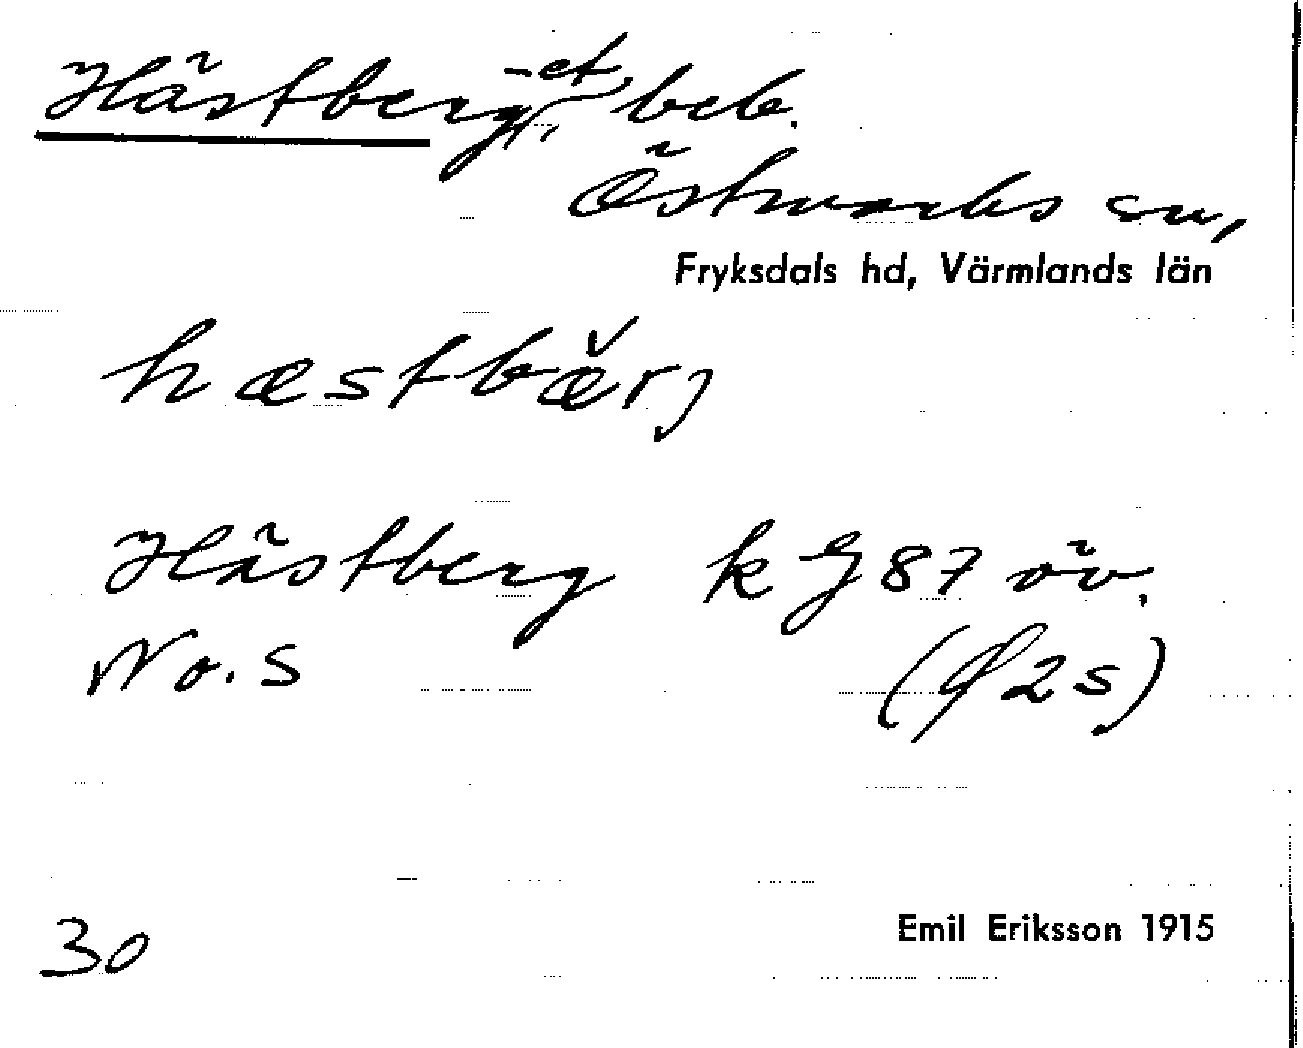 Hästberg, -et, beb.
Östmarks sn,
Fryksdals hd, Värmlands län
hæstbæ̌rj
Hästberg k J 87 öv.
No. S (/ 2 s)
30 Emil Eriksson 1915